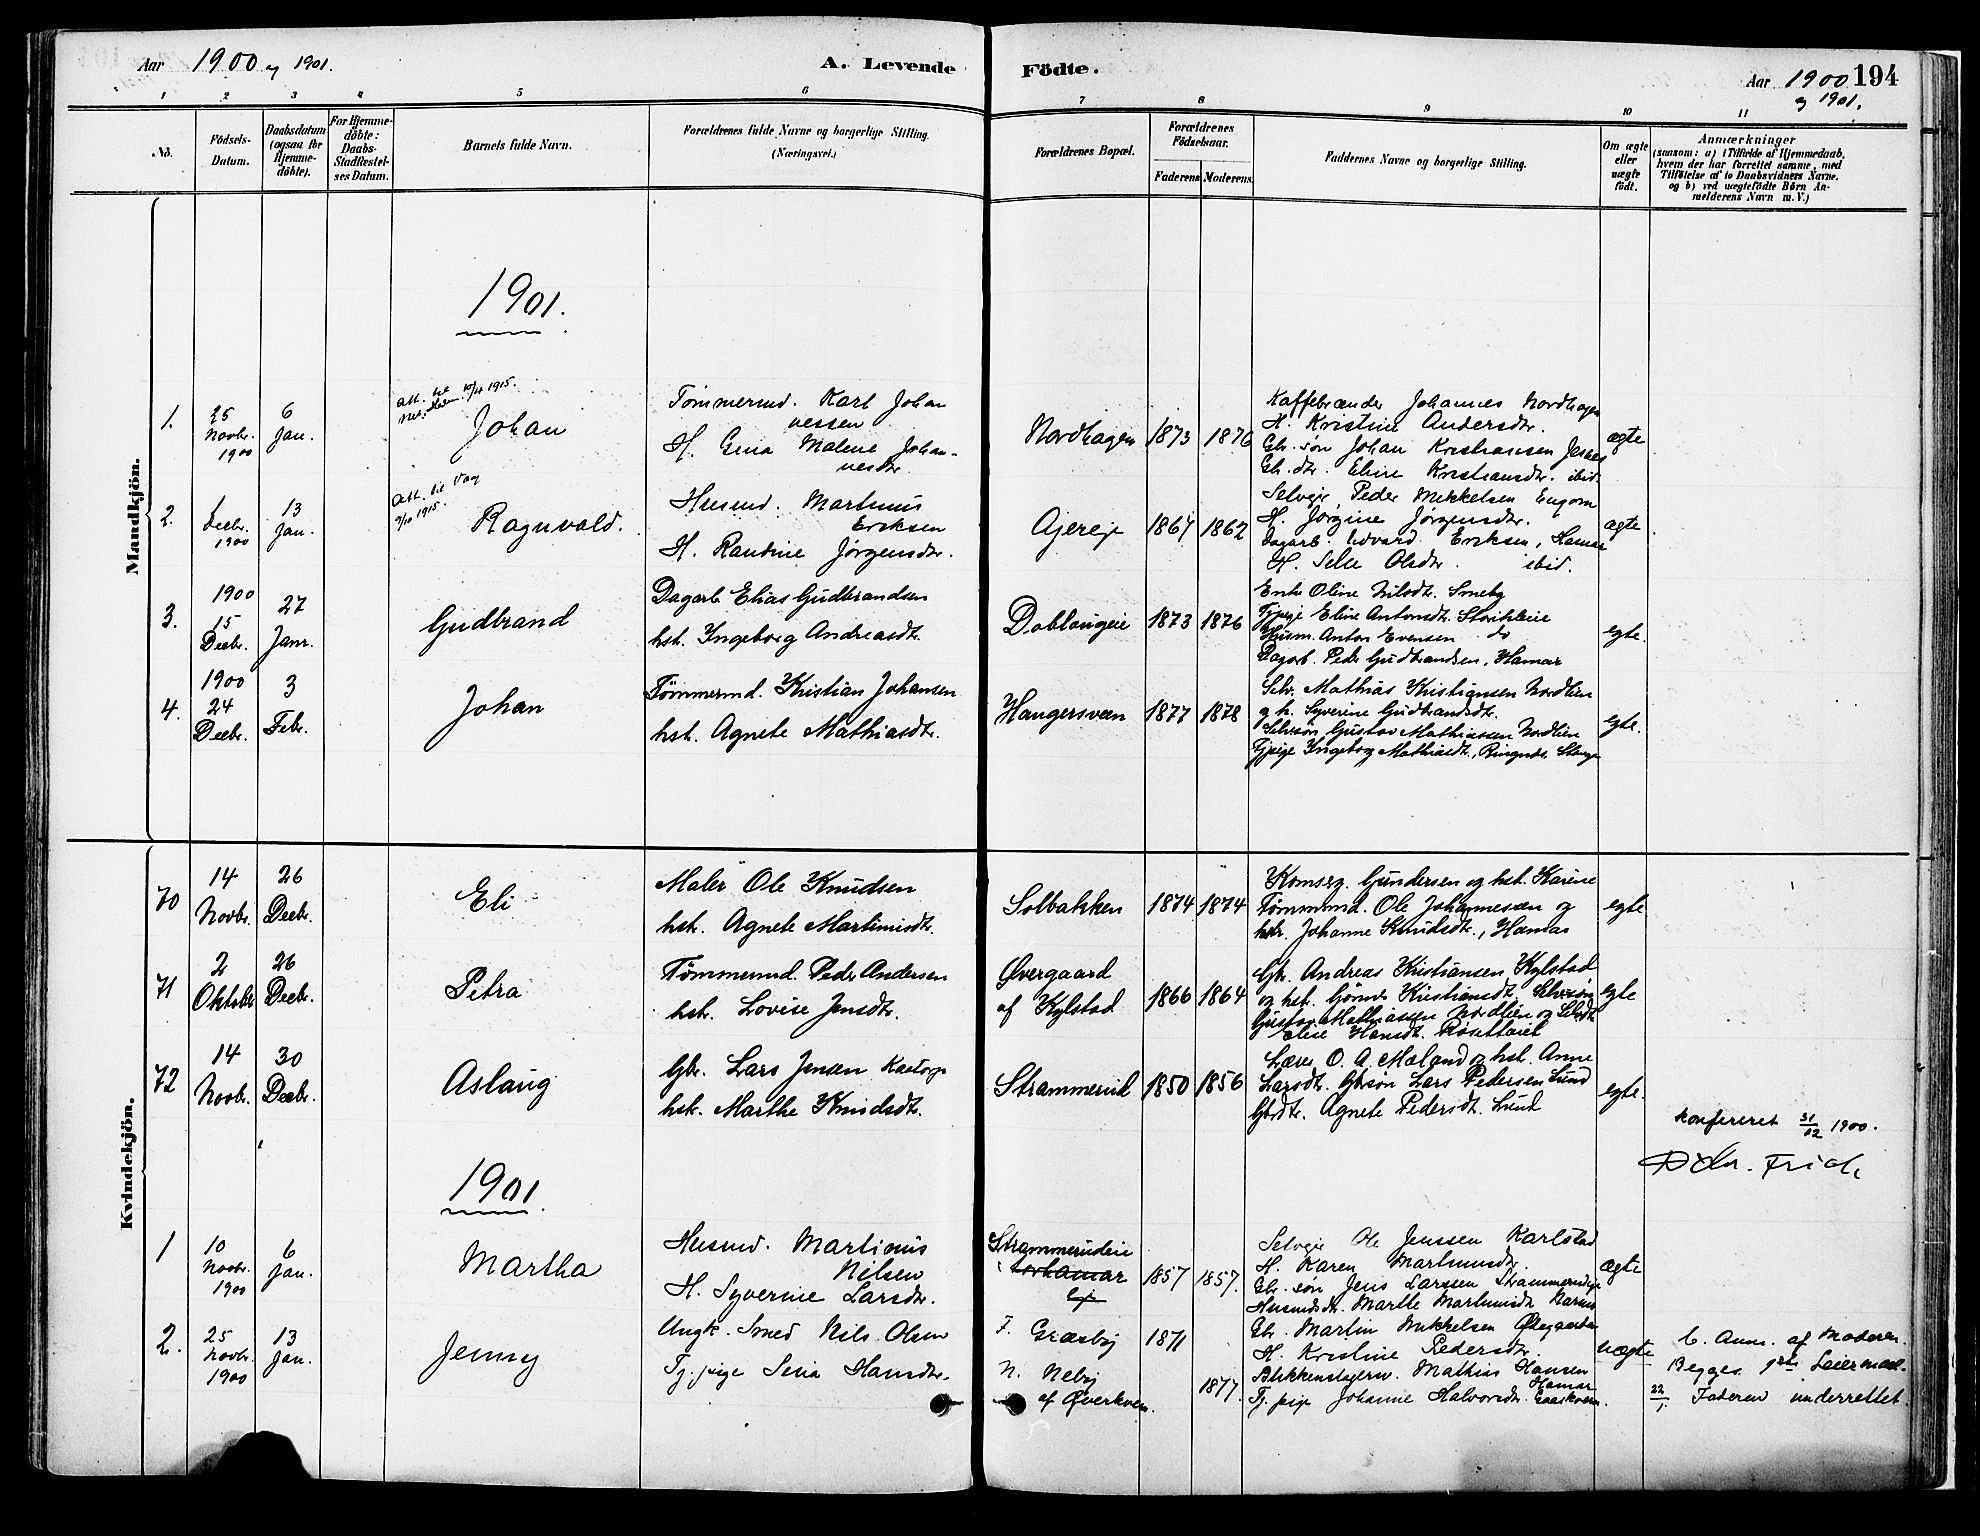 Aar 1900 og 1901.
A. Levende
Födte.
Aar 1900 194
og 1901.
1 2 3 4 5 6 7 8 9 10 11
No.
Födsels-
Datum.
Daabsdatum
(ogsaa for
Hjemme-
döbte).
For Hjemme-
döbte:
Daabs-
Stadfæstel-
ses Datum.
Barnets fulde Navn.
Forældrenes fulde Navne og borgerlige Stilling.
(Næringsvei.)
Forældrenes Bopæl.
Forældrenes
Födselsaar.
Faderens Moderens
Faddernes Navne og borgerlige Stilling.
Om ægte
eller
uægte
födt.
Anmærkninger
(saasom: a) i Tilfælde af Hjemmedaab,
hvem der har forrettet samme, med
Tilföielse af to Daabsvidners Navne,
og b) ved uægtefödte Börn An-
melderens Navn m. V.)
Mandkjön.
1901.
1.
25
Novbr.
1900
6
Jan.
Att.
10/11 1915.
Johan
Tømmermd. Karl Johan
nessen
H. Gina Malene Johan-
nesdtr.
Nordhagen
1873
1876
Kaffebrænder Johannes Nordhagen
H. Kristine Andersdtr.
Gbr. søn Johan Kristiansen Jesnes
Gb. dtr. Eline Kristiansdtr. ibid.
ægte
2.
Decbr.
1900
13
Jan.
Att.
1915.
Ragnvald.
Husmd. Martinus
Eriksen
H. Randine Jørgensdtr.
Ajereje
1867
1862
Selveje Peder Mikkelsen Engom
H. Jørgine Jørgensdtr.
Dagarb. Edvard Eriksen, Hamar
H. Olsdtr. ibid.
ægte
3.
1900
15
Decbr.
27
Janr.
Gudbrand
Dagarb. Elias Gudbrandsen
hst. Ingeborg Andreasdtr.
Doblougeie
1873
1876
Enke Oline Nilsdt. Smeby
Tjpige Eline Antonsdt.
Husm. Anton Evensen do
Dagarb. Peder Gudbrandsen, Hamar
egte.
4.
1900
24
Decbr.
3
Febr.
Johan
Tømmermd. Kristian Johansen
hst. Agnete Mathiasdtr.
Hangersveen
1877
1878
Selv. Mathias Kristiansen Nordlien
og h. Syverine Gudbrandsdtr.
Selvsøn Gustav Mathiassen Nordlien
Tjpige Ingeborg Mathiasdt., Ringnes, Stange
egte.
Kvindekjön.
70
14
Novbr.
26
Decbr.
Eli
Maler Ole Knudsen
hst. Agnete Martinusdtr.
Solbakken
1874
1874
Gundersen og hst. Karine
Tømmermd. Ole Johannessen og
hst. Johanne Knudsdt., Hamar
egte
71
2
Oktober
26
Decbr.
Petra
Tømmermd. Peder Andersen
hst. Lovise Jensdtr.
Øvergaard
af Kylstad
1866
1864
Gbr. Andreas Kristiansen Kylstad
og hst. Kristiansdt. Selvsøn
Gustav Mathiassen Nordlien og
Hansdt.
egte
72
14
Novbr.
30
Decbr.
Aslaug
Gbr. Lars Jensen
hst. Marthe Knudsdtr.
Strammerud
1850
1856
Lærer O. A. Mæland og hst. Anne
Larsdtr. Gbrsøn Lars Pedersen Lund
Gbrdtr. Agnete Pedersdt. Lund
egte.
Konfereret 31/12 1900.
Frich
1901.
1
10
Novbr.
1900
6
Jan.
Martha
Husmd. Martinus
Nilsen
H. Syverine Larsdtr.
Strammerudeie
1857
1857.
Selveje Ole Jenssen Karlstad
H. Karen Martinusdtr.
Gbr. søn Jens Larssen Strammerudeje
Husmdsdt. Marthe Martinusdt.
ægte
2.
25
Novbr.
1900
13
Jan.
Jenny
Ungk. Smed Nils Olsen
Tj. pige Sina Hansdtr.
F. Græsby
N. Neby
af Øverkvern.
1871
1877
Gbr. Martin Mikkelsen
H. Kristine Pedersdtr.
Blikkenslagersv. Mathias Hansen
Hamar
Tj. pige Johanne Halvorsdtr.
uægte
Anm. af Moderen.
Begges 1ste Leiermaal.
22/1 Faderen underrettet.